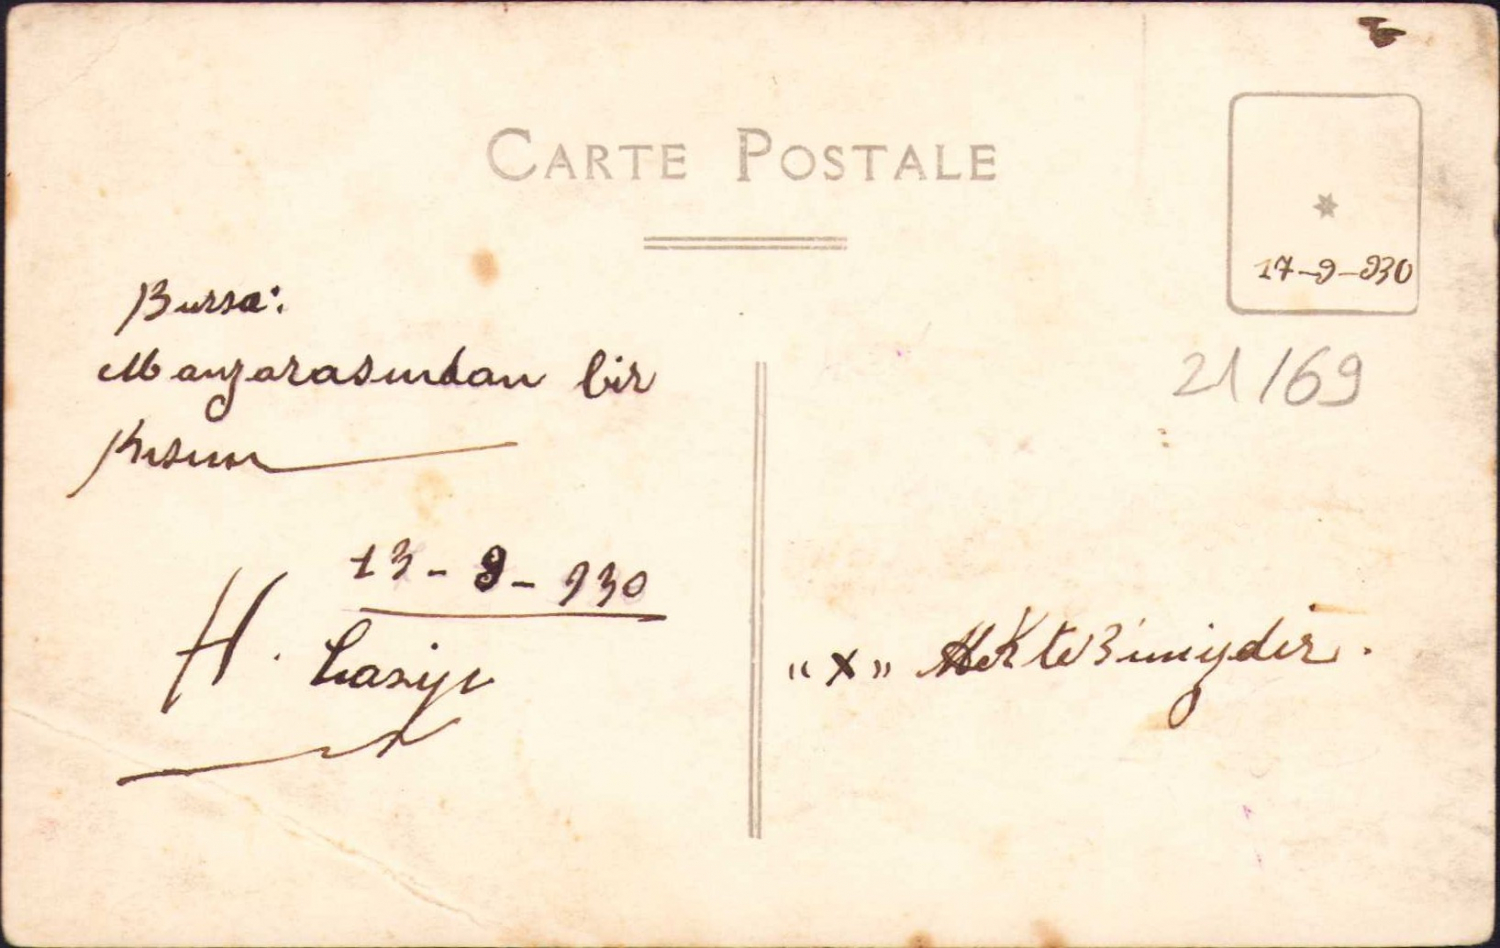 CARTE POSTALE
17-9-930
21/69
Bursa:
Manzarasından bir
Kısım
13-9-930
H.
"x" Mektebimizdir.